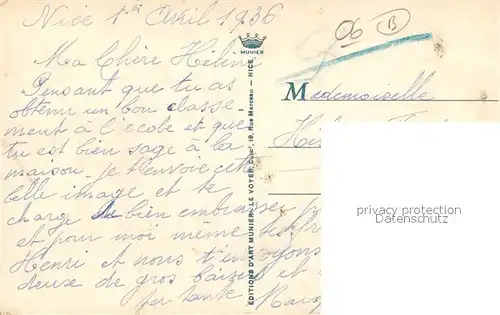 Nice 1er Avril 1936
Ma Chère Hélène
Pensant que tu as
obtenu un bon classe
ment à l'école et que
tu est bien sage à la
maison je t'envoie cette
belle image et te
charge de bien embrasser
et pour moi même
Henri et nous t'envoyons
deux de gros baisers et
ta tante
06 B
MUNIER
EDITIONS D'ART MUNIER LE VOYER, 18, Rue Marceau — NICE
Mademoiselle
privacy protection